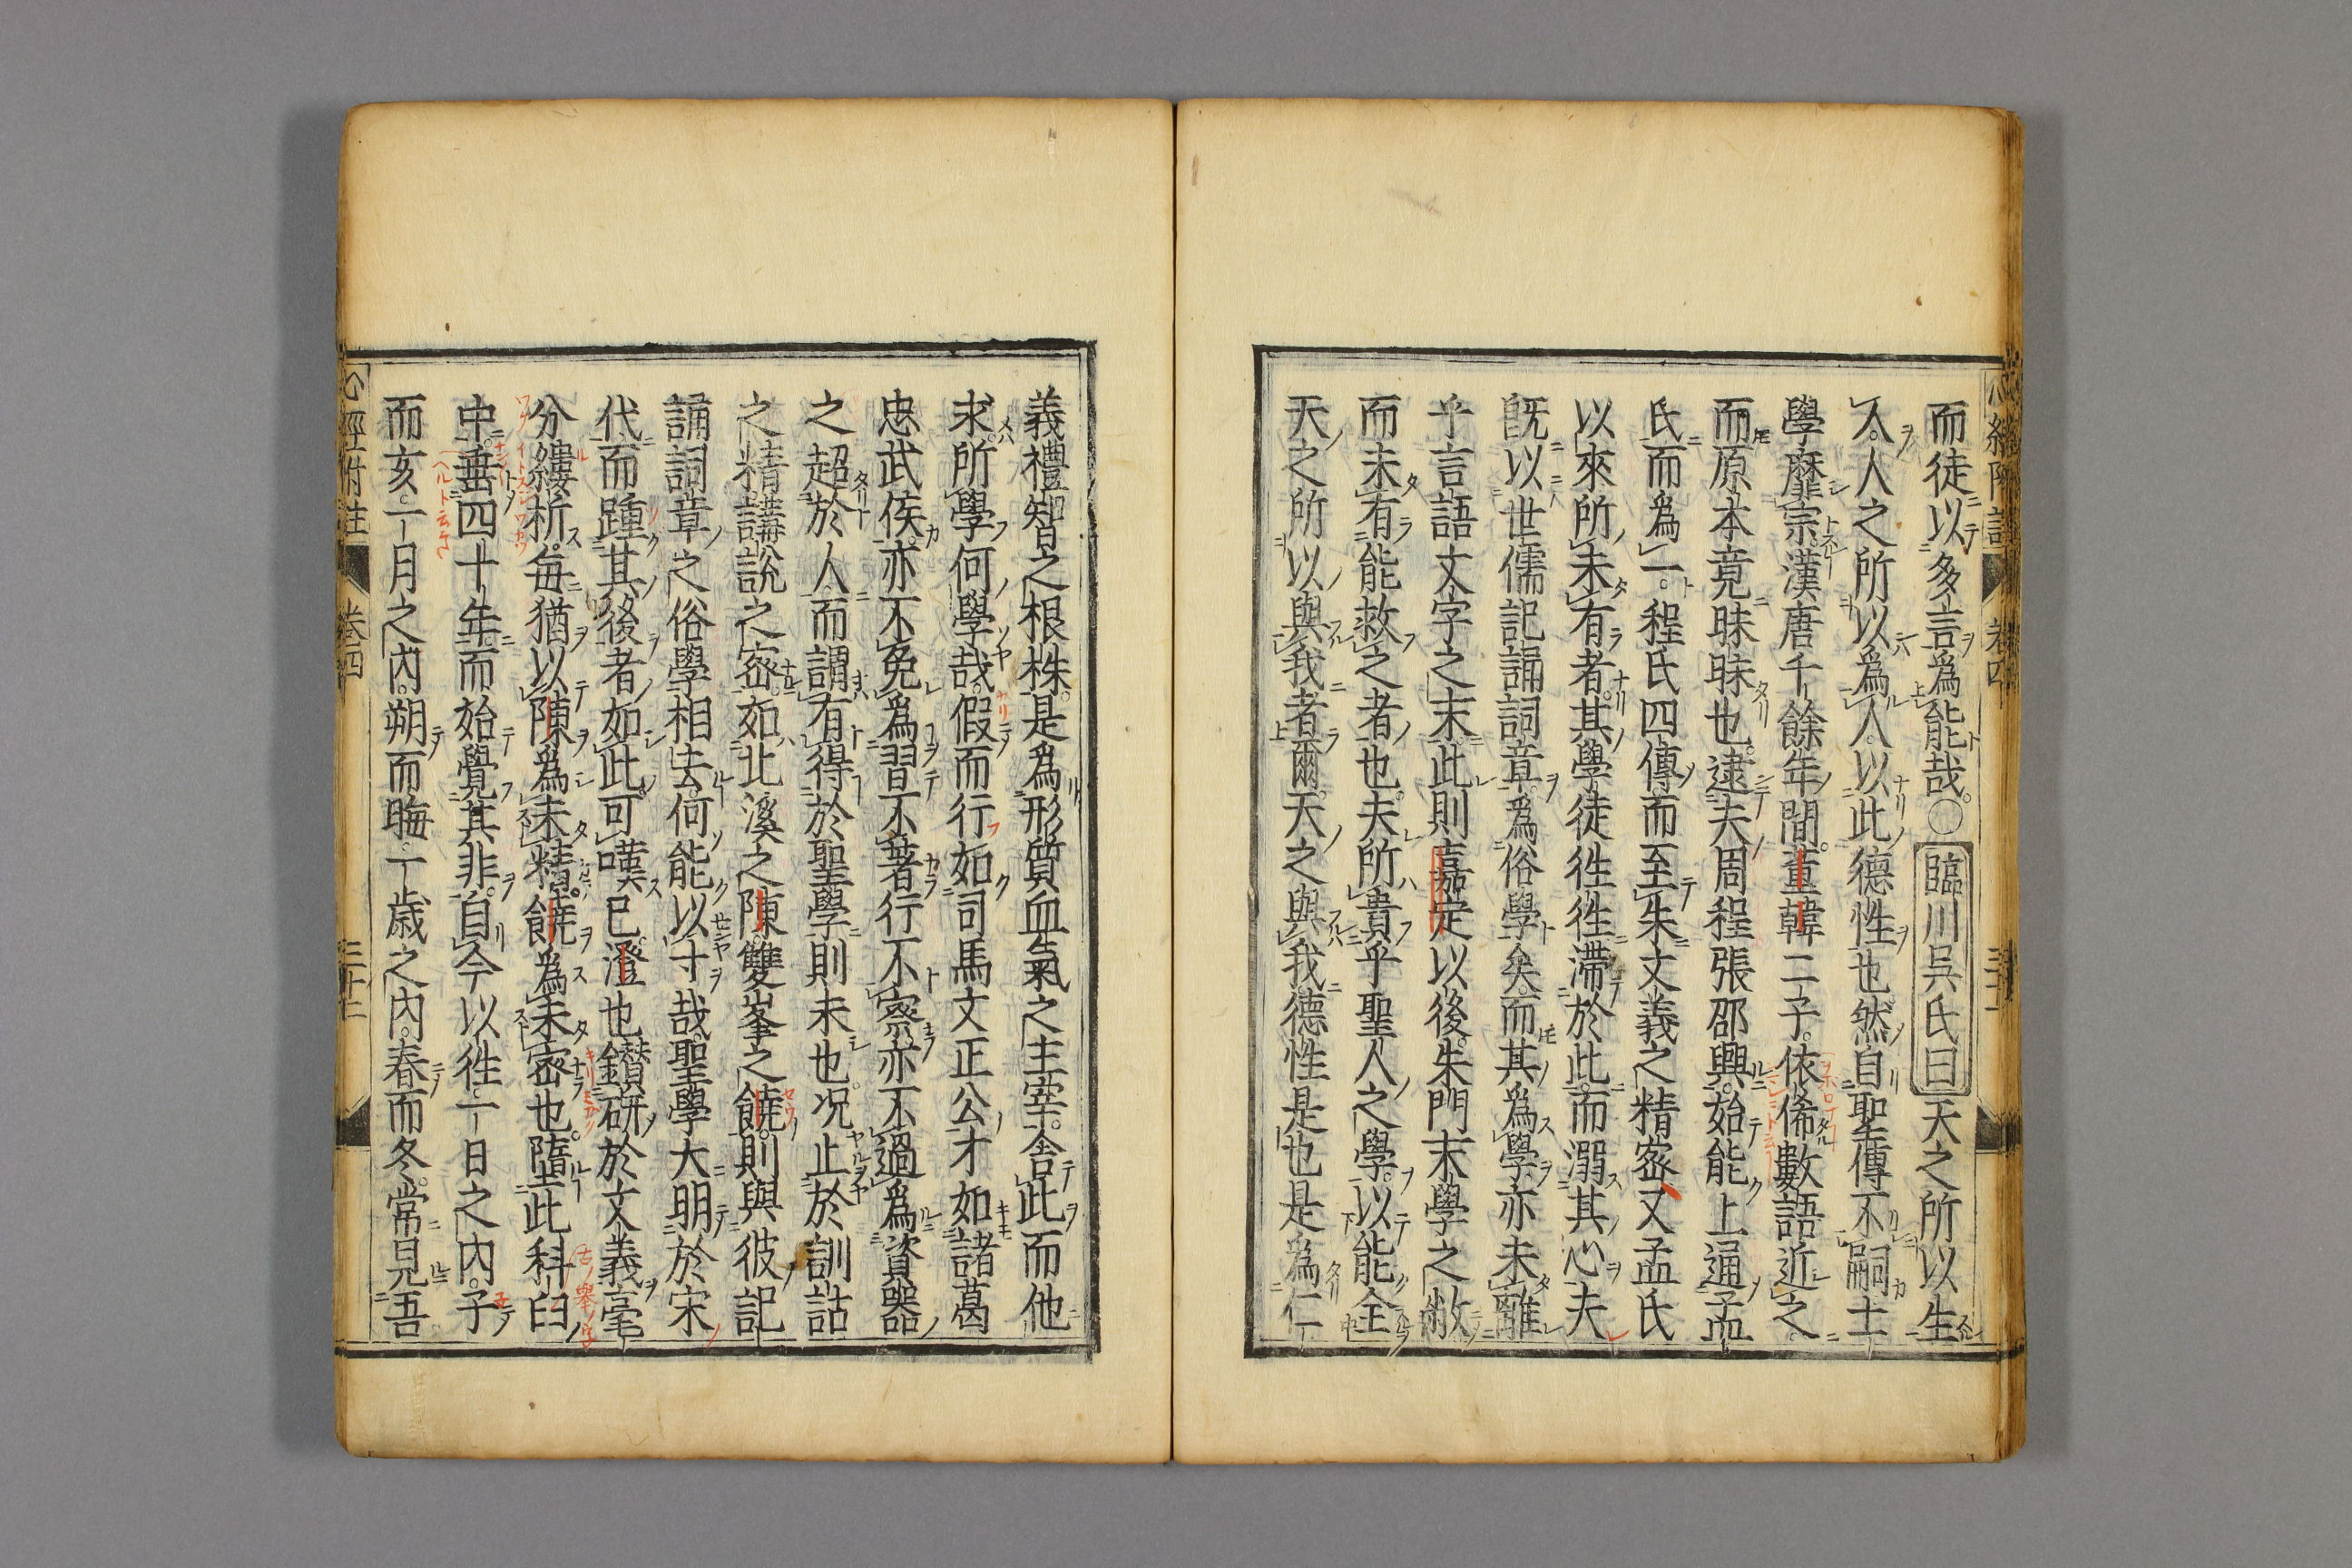 而徒以多言爲能哉○臨川吳氏曰天之所以生
人人之所以爲人以此德性也然自聖傳不嗣士
學靡宗漢唐千餘年間董韓二子依俙數語近之
而原本竟昧昧也逮夫周程張邵興始能上通孟
氏而爲一程氏四傳而至朱文義之精密又孟氏
以來所未有者其學徒徃徃滯於此而溺其心夫
旣以世儒記誦詞章爲俗學矣而其爲學亦未離
乎言語文字之末此則嘉定以後朱門末學之敝
而未有能救之者也夫所貴乎聖人之學以能全
天之所以與我者爾天之與我德性是也是爲仁
義禮智之根株是爲形質血氣之主宰舍此而他
求所學何學哉假而行如司馬文正公才如諸葛
忠武侯亦不免爲習不著行不察亦不過爲資器
之超於人而謂有得於聖學則未也况止於訓詁
之精講說之密如北溪之陳雙峯之饒則與彼記
誦詞章之俗學相去何能以寸哉聖學大明於宋
代而踵其後者如此可嘆已澄也鑚硏於文義毫
分縷析每猶以陳爲未精饒爲未密也墮此科臼
中垂四十年而始覺其非自今以徃一日之內子
而亥一月之內朔而晦一歲之內春而冬常見吾
心經附註 卷四 三十二